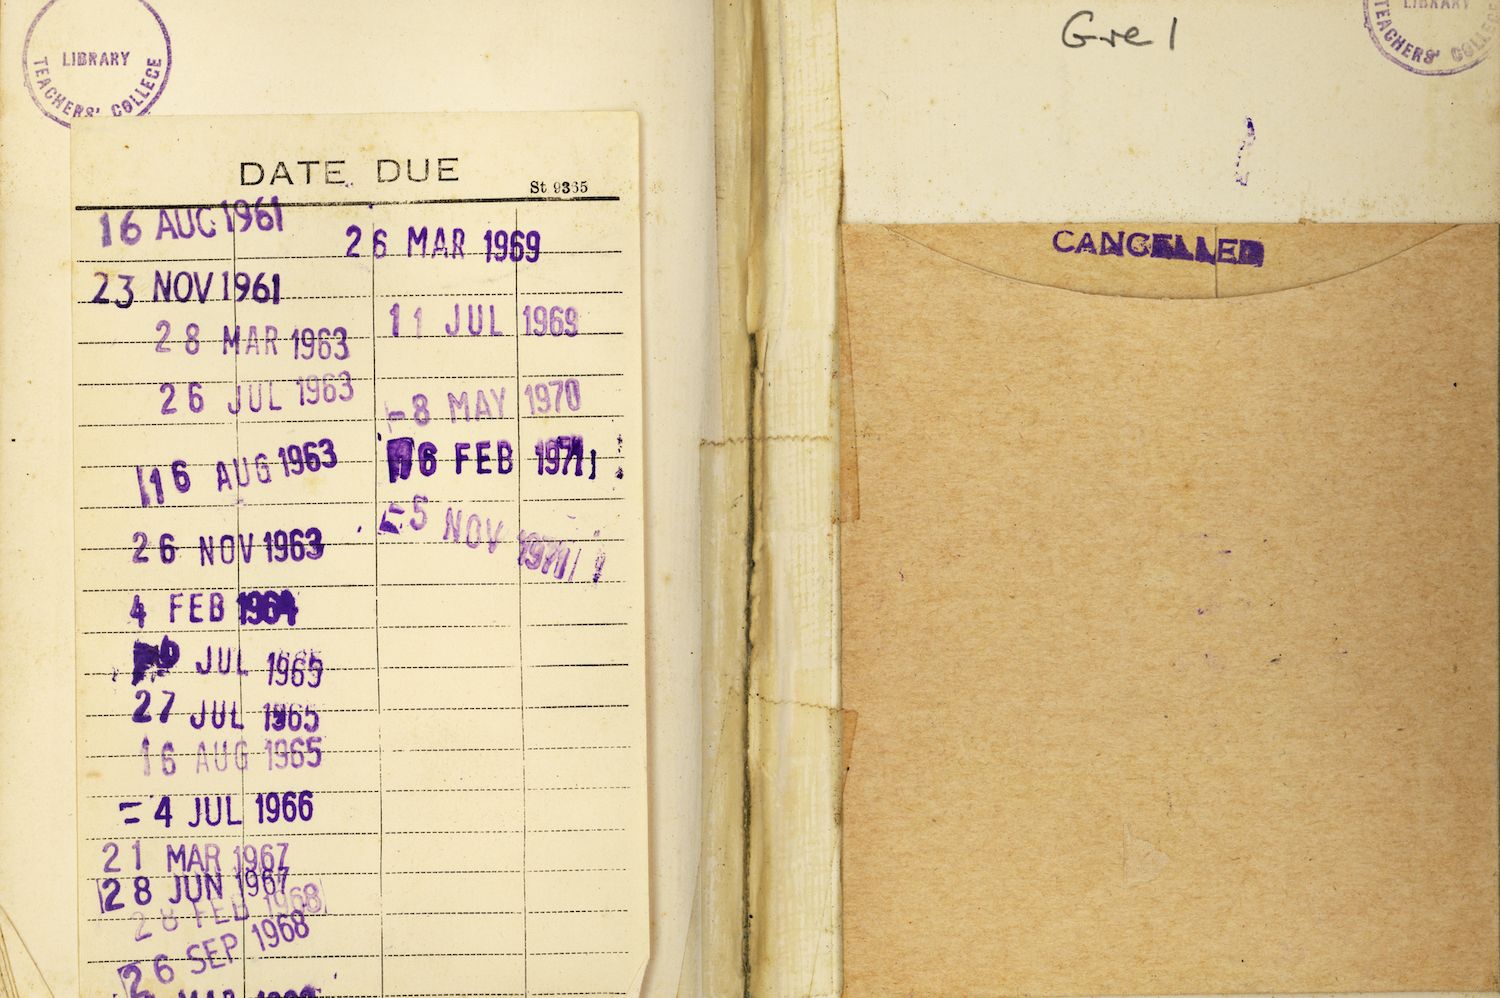 LIBRARY
TEACHERS' COLLEGE
DATE DUE
St 9365
16 AUG 1961
23 NOV 1961
28 MAR 1963
26 JUL 1963
16 AUG 1963
26 NOV 1963
4 FEB 1964
JUL 1965
27 JUL 1965
16 AUG 1965
4 JUL 1966
21 MAR 1967
28 JUN 1967
28 FEB 1968
26 SEP 1968
MAR
26 MAR 1969
11 JUL 1969
-8 MAY 1970
FEB 1971
5 NOV 1971
Gre 1
LIBRARY
TEACHERS' COLLEGE
CANCELLED